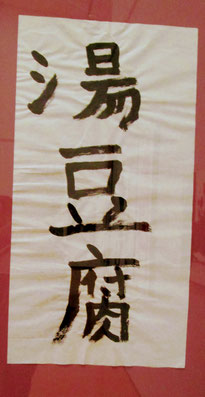 湯豆腐